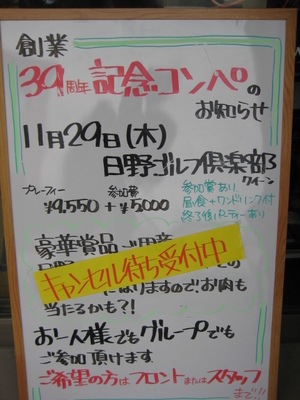 創業
39周年記念コンペの
お知らせ
11月29日(木)
日野ゴルフ倶楽部
クイーン
プレーフィー 参加費
¥9,550 + ¥5,000
参加賞あり
昼食+ワンドリンク付
終了後パーティーあり
豪華賞品
キャンセル待ち受付中
ありますので!お肉も
当たるかも?!
お一人様でもグループでも
ご参加頂けます
ご希望の方はフロントまたはスタッフ
まで!!